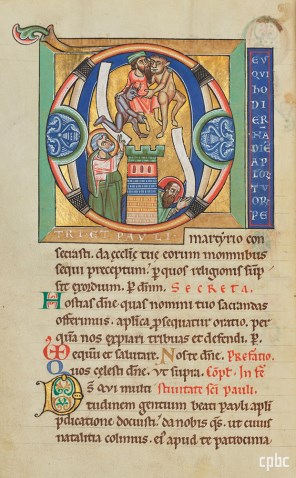 EVS
QVI
HODI
ERN
ADIE
APLO
TVOR
PE
TRI ET PAVLI
martyrio con
secrasti. da ecclie tue eorum in omnibus
sequi preceptum. p quos religionis sup
sit exordium. P. dnm. SECRETA.
Hostias dne. quas nomini tuo sacrandas
offerimus. aplica psequatur oratio. per
quam nos expiari tribuas et defendi. P.
equum et salutare. Noste dne. Prefatio.
uos celesti dne. ut supra.
DS qui multi
tudinem gentium beati pauli apli
pdicatione docuisti. da nobis qs. ut cuius
natalitia colimus. et apud te patrocinia
cpbc